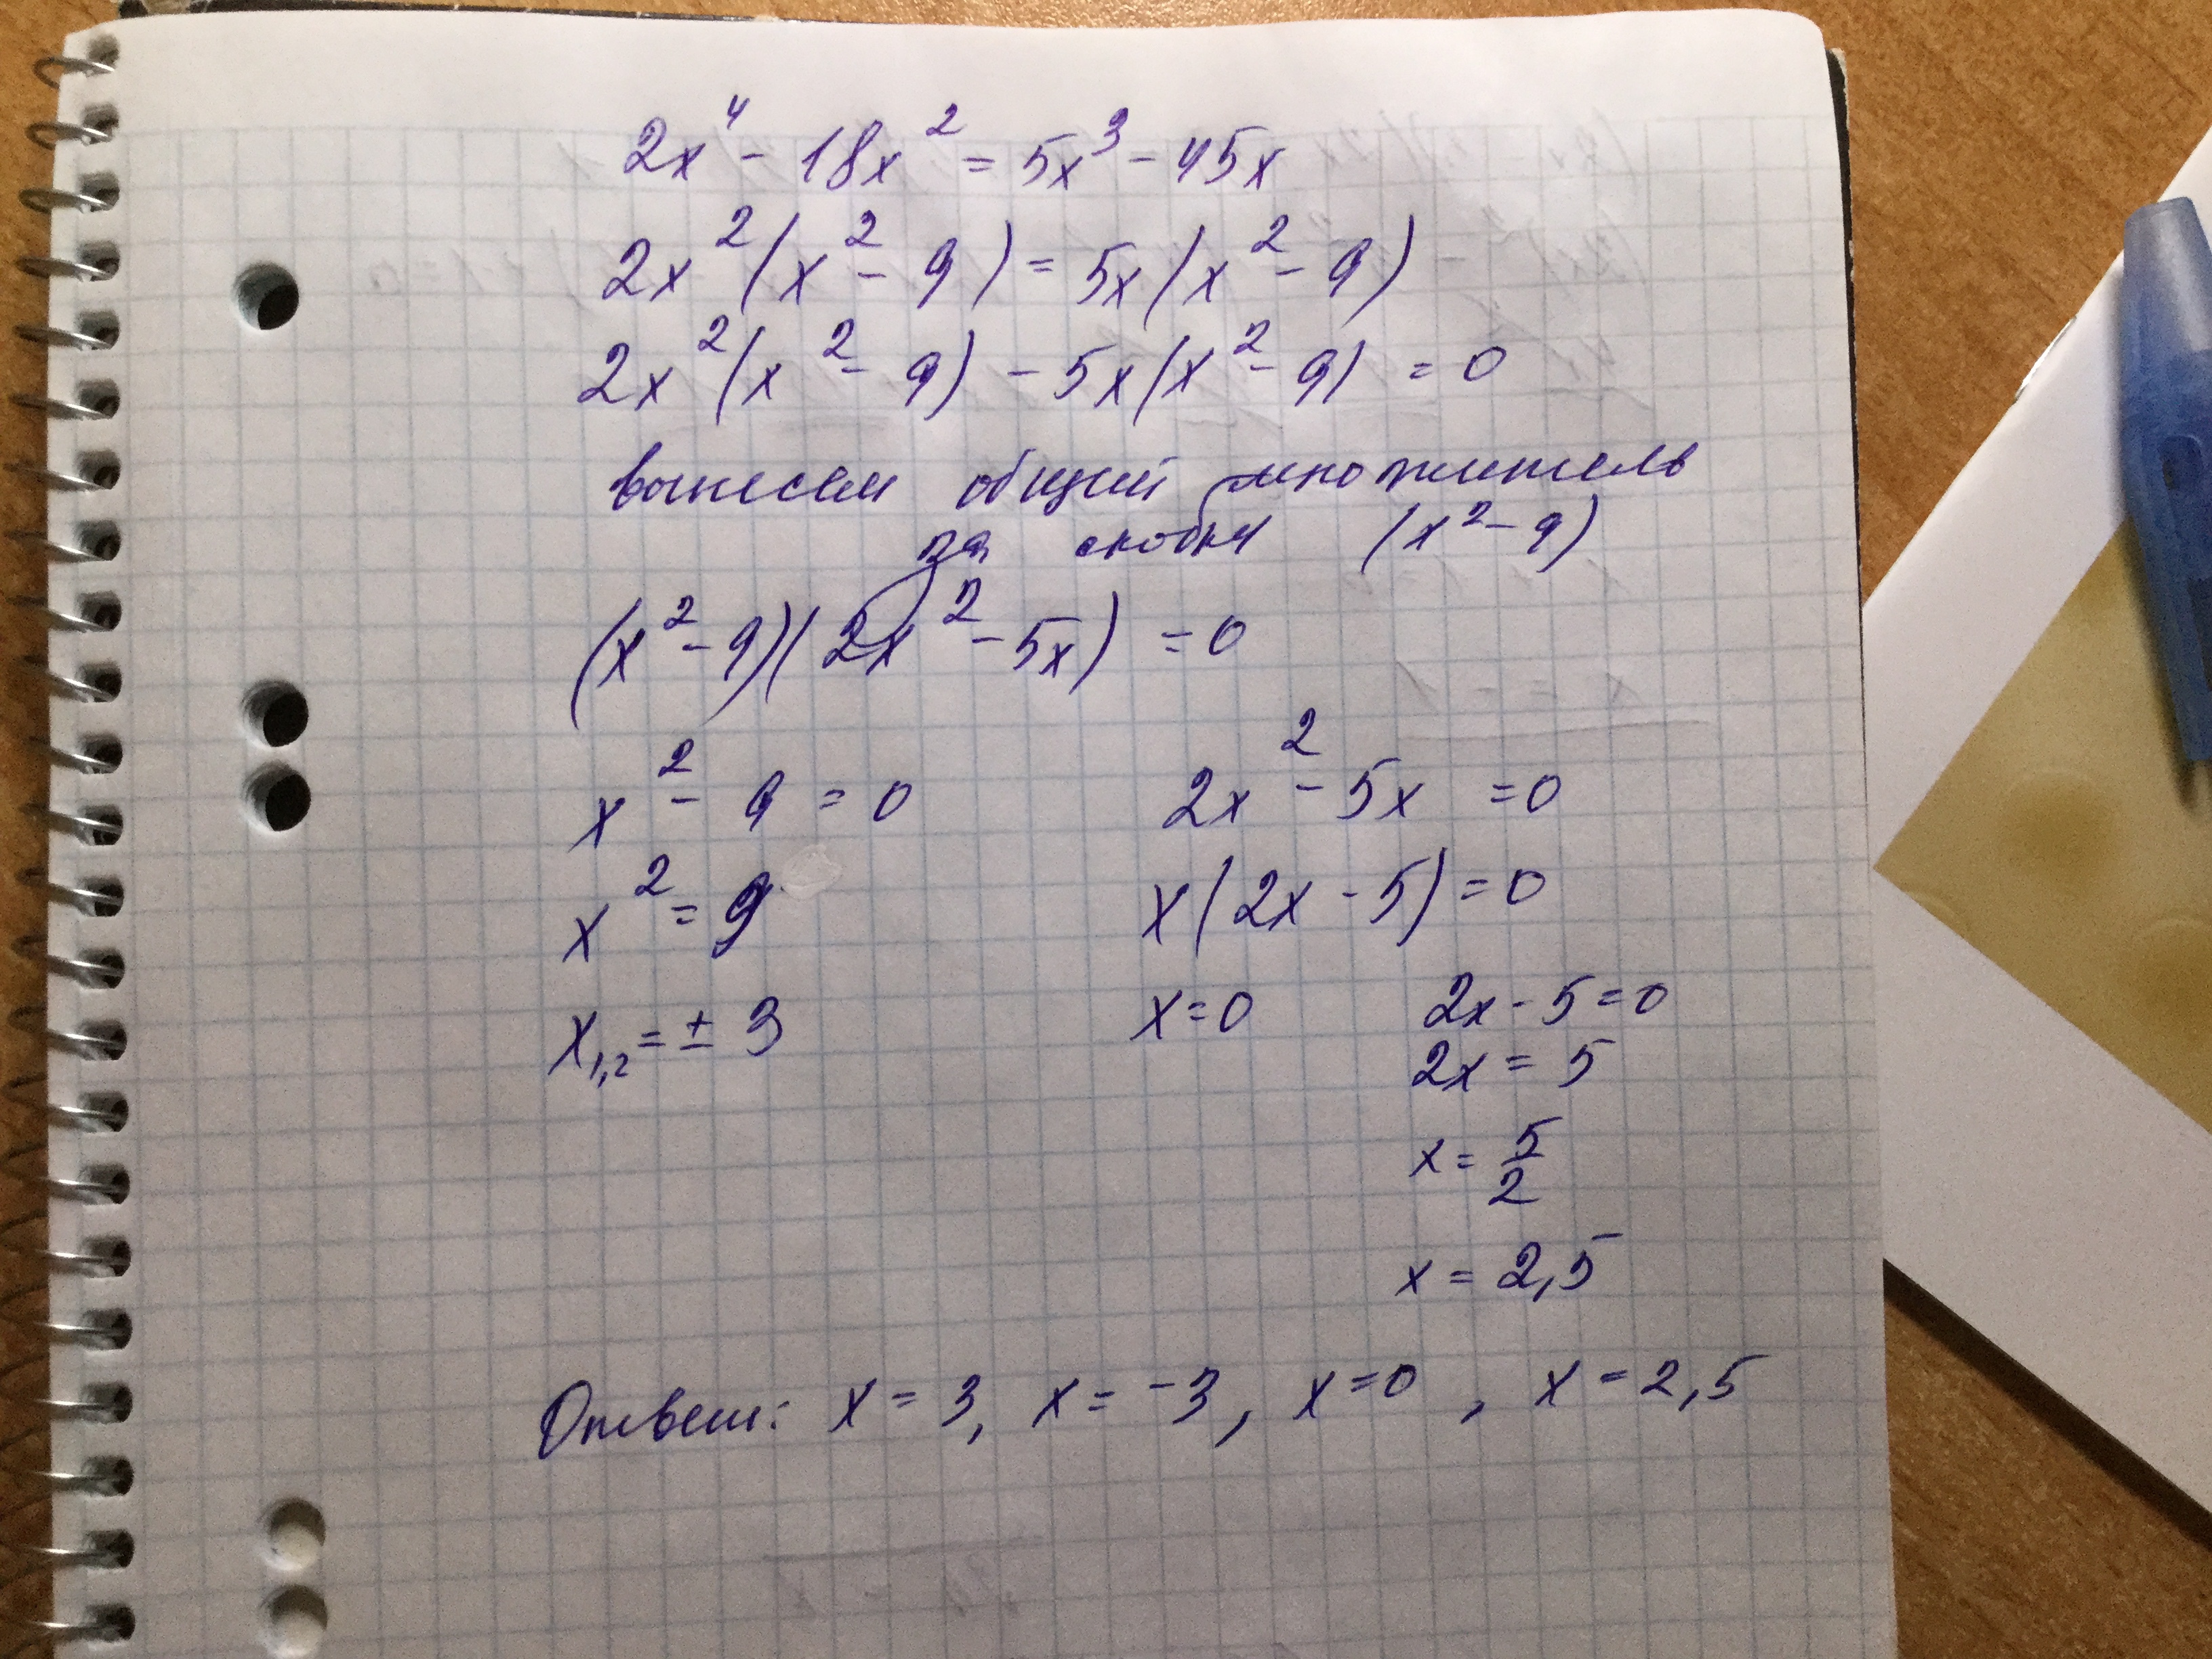 2x⁴ - 18x² = 5x³ - 45x
2x²(x² - 9) = 5x(x² - 9)
2x²(x² - 9) - 5x(x² - 9) = 0
вынесем общий множитель
за скобки (x² - 9)
(x² - 9)(2x² - 5x) = 0
x² - 9 = 0 2x² - 5x = 0
x² = 9 x(2x - 5) = 0
x₁,₂ = ± 3 x = 0 2x - 5 = 0
2x = 5
x = 5/2
x = 2,5
Ответ: x = 3, x = -3, x = 0, x = 2,5